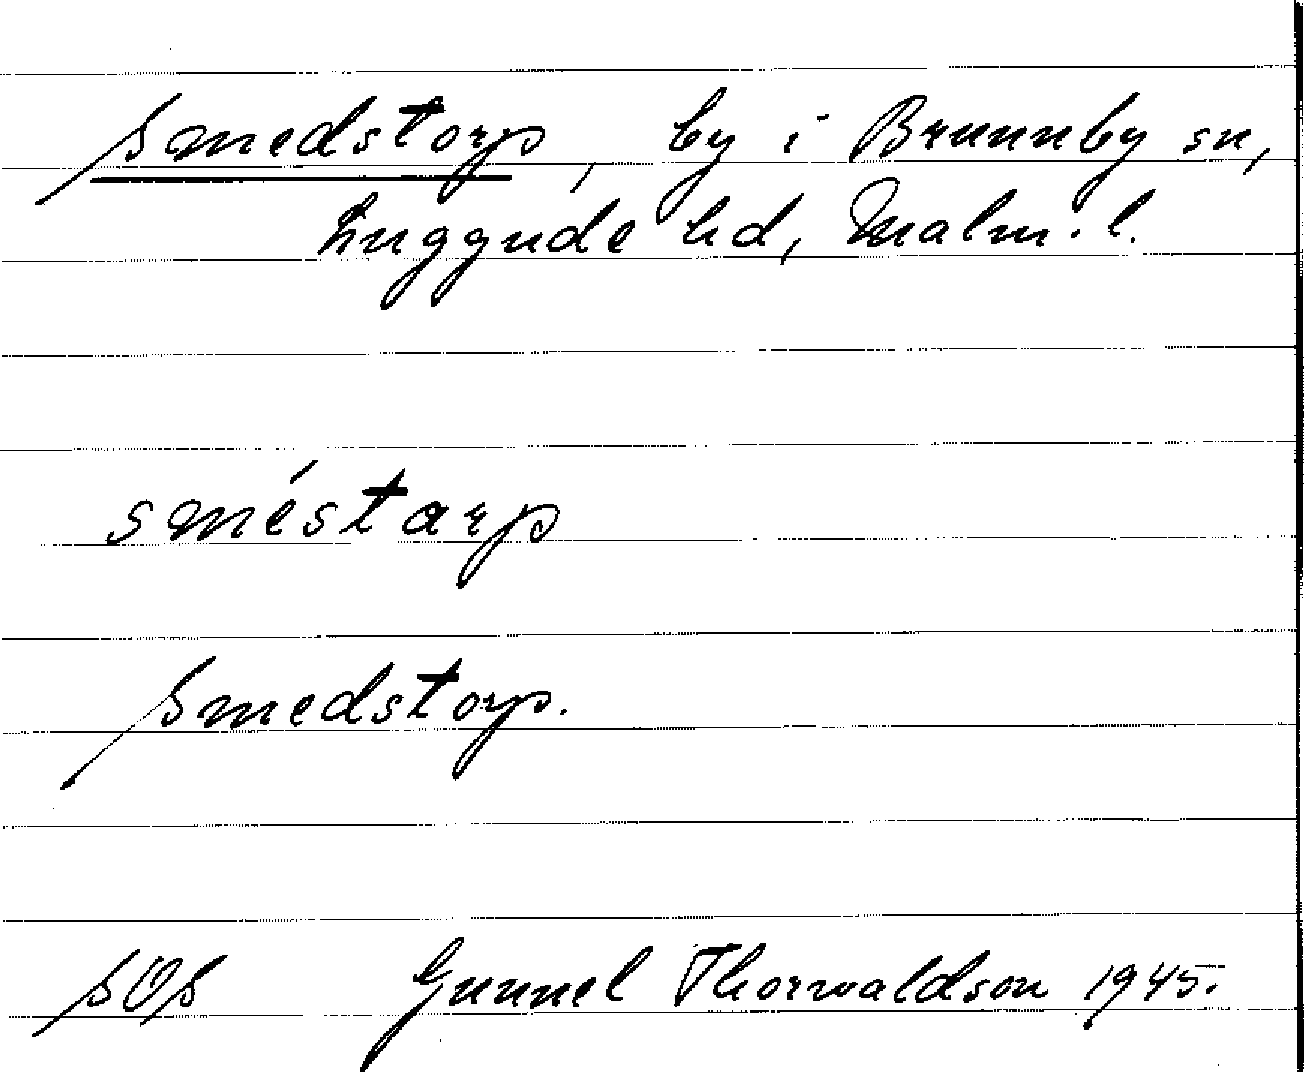 Smedstorp, by i Brunnby sn,
Luggude hd, Malm. l.
sméstarp
Smedstorp.
SOS Gunnel Thorwaldson 1945.